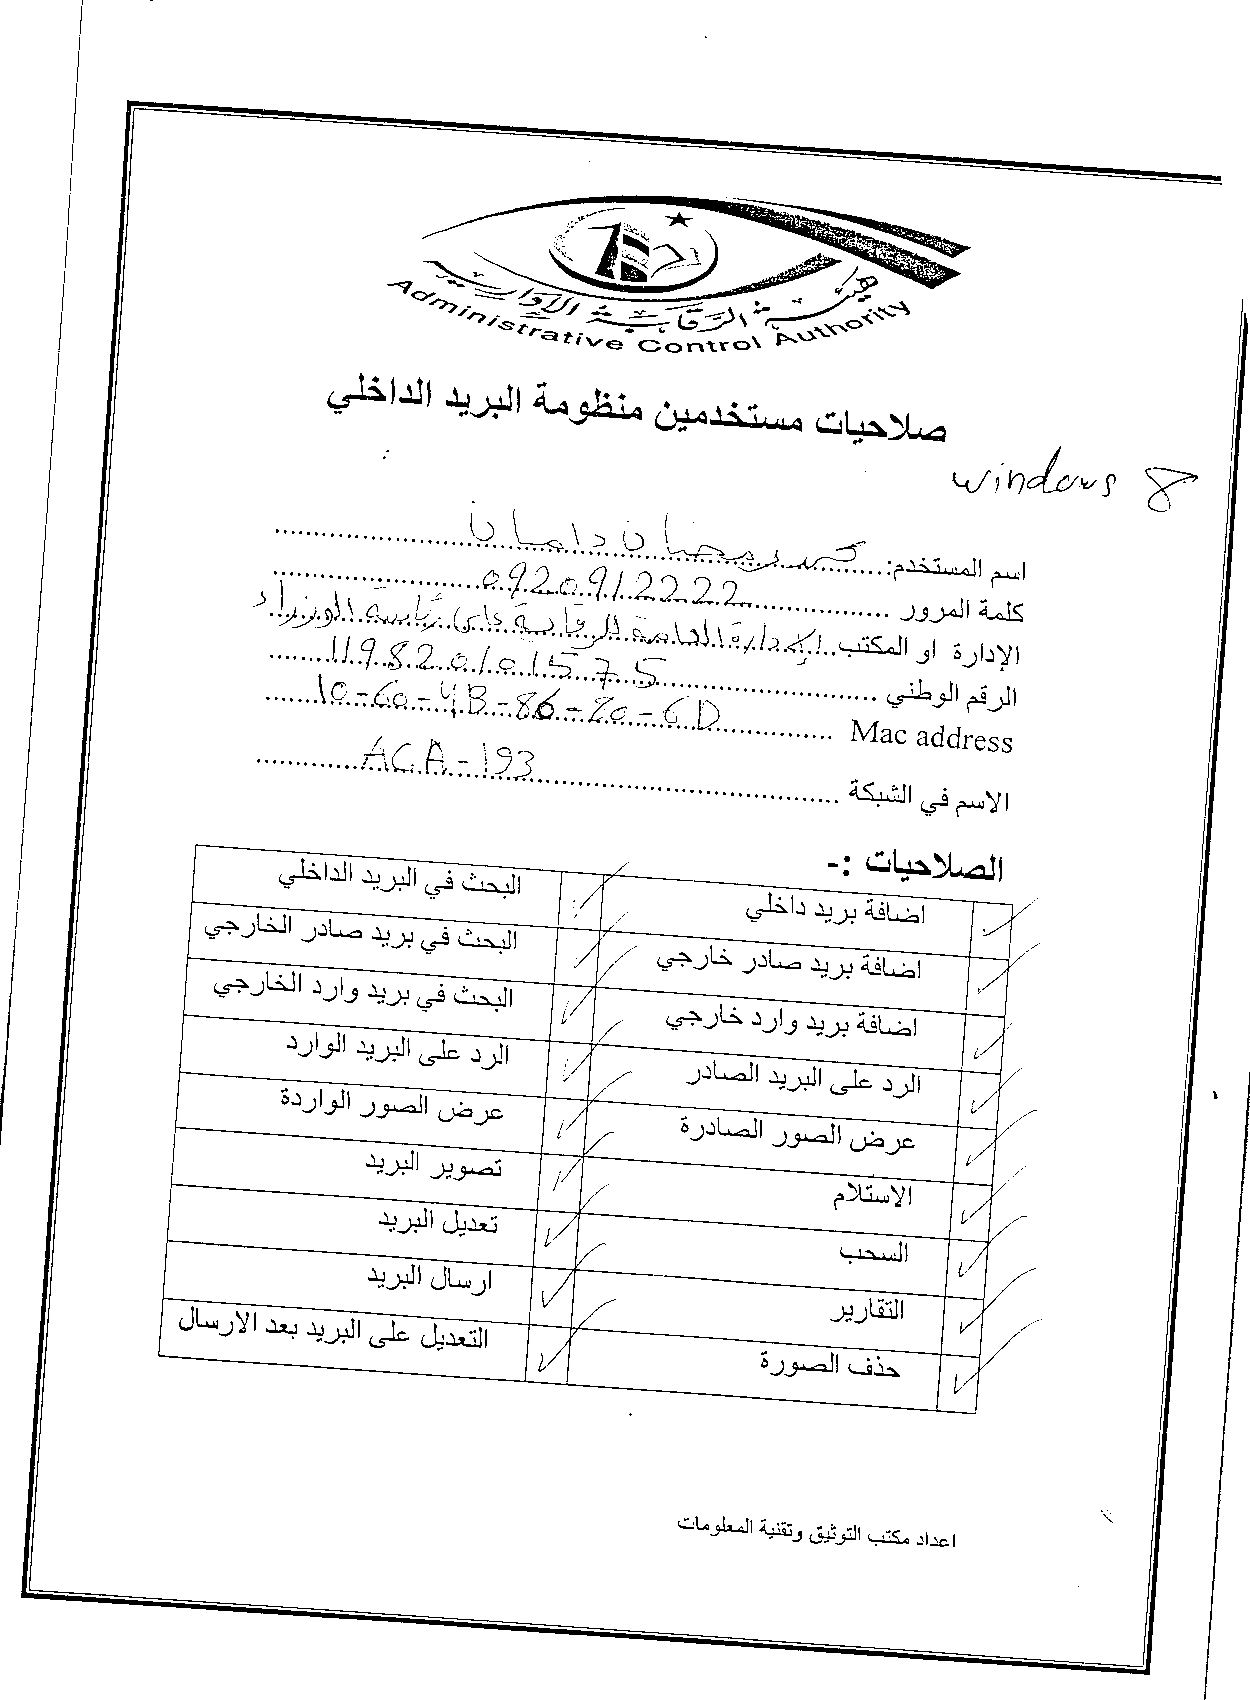 هيئة الرقابة الإدارية
Administrative Control Authority
صلاحيات مستخدمين منظومة البريد الداخلي
windows 8
اسم المستخدم: محمد رمضان دامان
كلمة المرور 0920912222
الإدارة او المكتب الإدارة العامة للرقابة على رئاسة الوزراء
الرقم الوطني 119820101575
Mac address 10-60-4B-86-20-6D
الاسم في الشبكة ACA-193
الصلاحيات :-
اضافة بريد داخلي البحث في البريد الداخلي
اضافة بريد صادر خارجي البحث في بريد صادر الخارجي
اضافة بريد وارد خارجي البحث في بريد وارد الخارجي
الرد على البريد الصادر الرد على البريد الوارد
عرض الصور الصادرة عرض الصور الواردة
الاستلام تصوير البريد
السحب تعديل البريد
التقارير ارسال البريد
حذف الصورة التعديل على البريد بعد الارسال
اعداد مكتب التوثيق وتقنية المعلومات